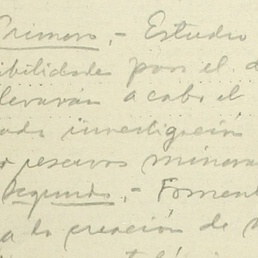 Primero.- Estudio
ibilidades para el d
llevarán a cabo el
oda investigación
reservas minera
Segundo.- Foment
a la creación de